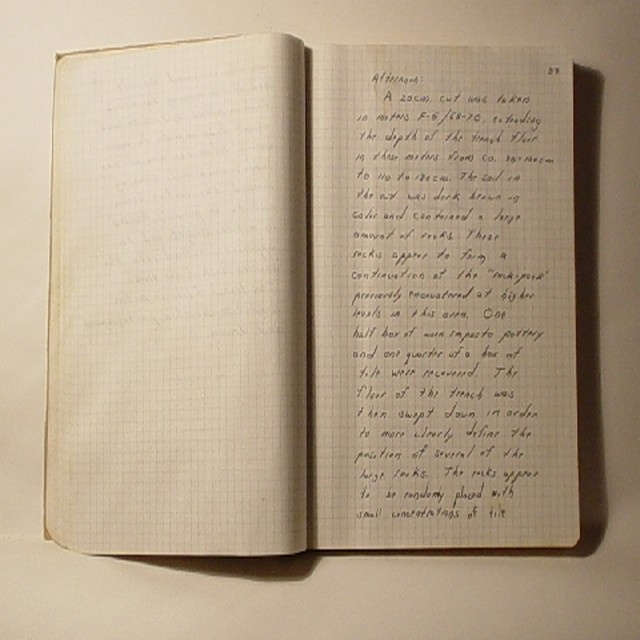 Afternoon:
A 20cm. cut was taken
in meters F-G/68-70, extending
the depth of the trench floor
in these meters from ca.
to 110 to 120cm. The soil in
the cut was dark brown in
color and contained a large
amount of rocks. These
rocks appear to form a
continuation of the "rock-pack"
previously encountered at higher
levels in this area. One
half box of non impasto pottery
and one quarter of a box of
tile were recovered. The
floor of the trench was
then swept down in order
to more clearly define the
position of several of the
large rocks. The rocks appear
to be randomly placed with
small concentrations of tile